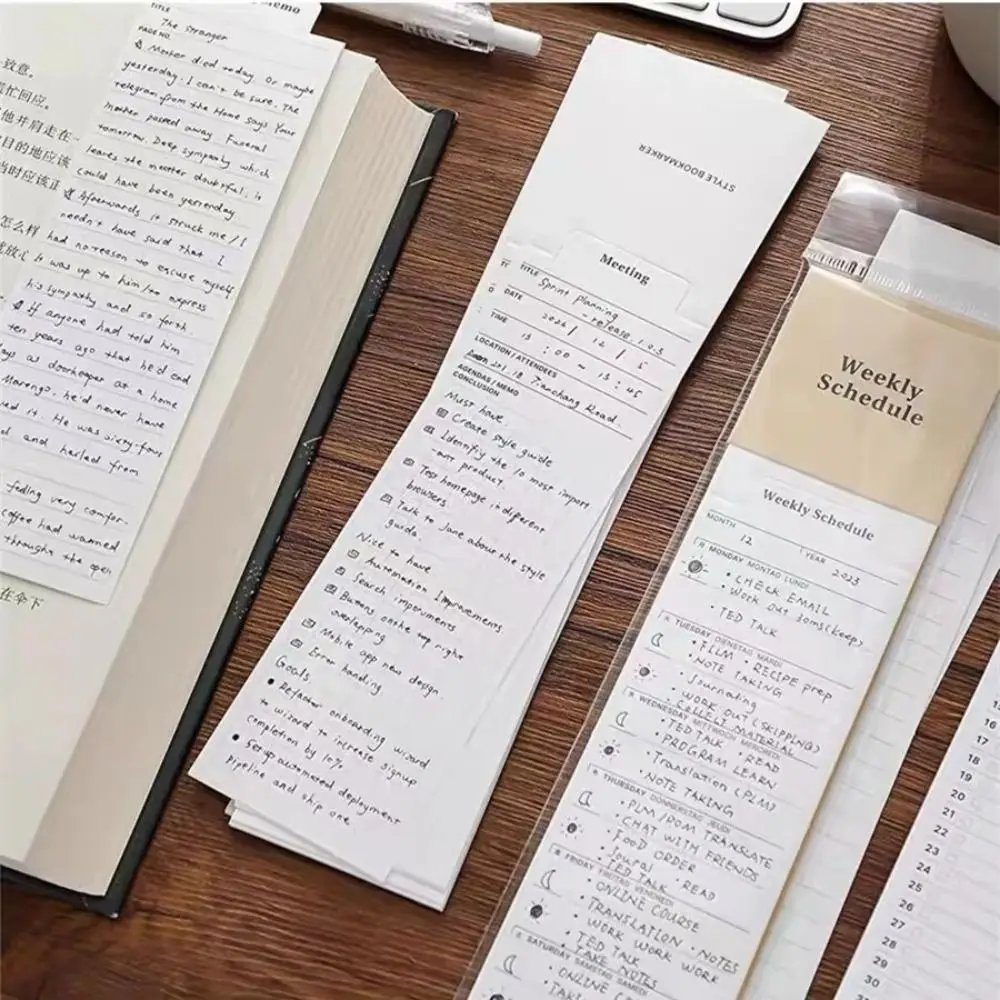 Memo
TITLE
The Stranger
PAGE NO.
Mother died today. Or maybe
yesterday; I can't be sure. The
telegram from the Home says Your
mother passed away Funeral
tomorrow. Deep sympathy which
leaves the matter doubtful; it
could have been yesterday
Afterwards it struck me / I
needn't have said that I
had no reason to excuse myself
it was up to him to express
his sympathy and so forth
If anyone had told him
ten years ago that he'd end
days as doorkeeper at a home
Marengo, he'd never have
it. He was sixty-four
and hailed from
feeling very comfor-
coffee had warmed
throughs the open
致意。
忙回应。
他并肩走在一
目的地应该
当时应该正
怎么样
放心
在伞下
STYLE BOOKMARKER
Meeting
TITLE Sprint Planning
- release 1.0.3
DATE 2026 / 12 / 5
TIME 13 : 00 ~ 13 : 45
LOCATION / ATTENDEES
Room 201.18 Tianchang Road.
AGENDAS / MEMO
CONCLUSION
Must have.
Create style guide
Identify the 10 most import
-ant product.
Test homepage in different
browsers.
Talk to Jane about the style
guide.
Nice to have
Automation Improvements
Search imporuments
Buttons on the top right
overlapping
Mobile app new design
Error handing
Goals
Refactor onboarding wizard
to wizard to increase signup
completion by 10%.
Set up automated deployment
Pipeline and ship one
Weekly
Schedule
Weekly Schedule
MONTH 12 YEAR 2023
MONDAY MONTAG LUNDI
• CHECK EMAIL
• Work out 30ms(keep)
• TED TALK
TUESDAY DIENSTAG MARDI
• FILM • RECIPE prep
• NOTE TAKING
• Journaling
• WORK OUT (SKIPPING)
• COLLELT MATERIAL
WEDNESDAY MITTWOCH MERCREDI
• TED TALK • READ
• PROGRAM LEARN
• Translation (PLM)
• NOTE TAKING
THURSDAY DONNERSTAG JEUDI
• PLM / PDM TRANSLATE
• CHAT WITH FRIENDS
• FOOD ORDER
• Journal
• TED TALK • READ
FRIDAY FREITAG VENDREDI
• ONLINE COURSE
• TRANSLATION • NOTES
• WORK WORK WORK
• TED TALK
• TAKE NOTES
SATURDAY SAMSTAG SAMEDI
• ONLINE
15
16
17
18
19
20
21
22
23
24
25
26
27
28
29
30